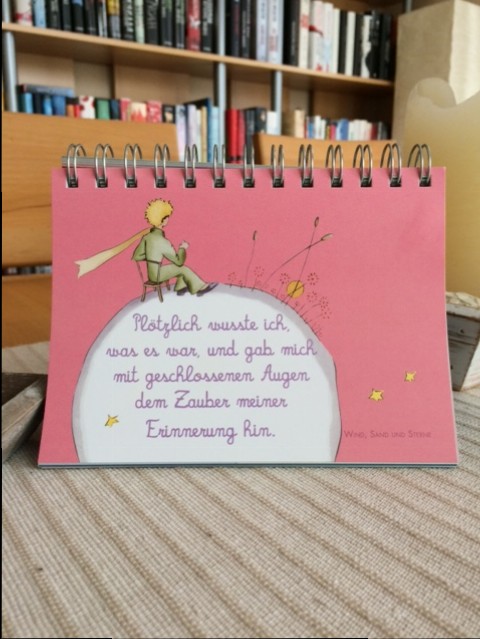 Plötzlich wusste ich,
was es war, und gab mich
mit geschlossenen Augen
dem Zauber meiner
Erinnerung hin.
Wind, Sand und Sterne